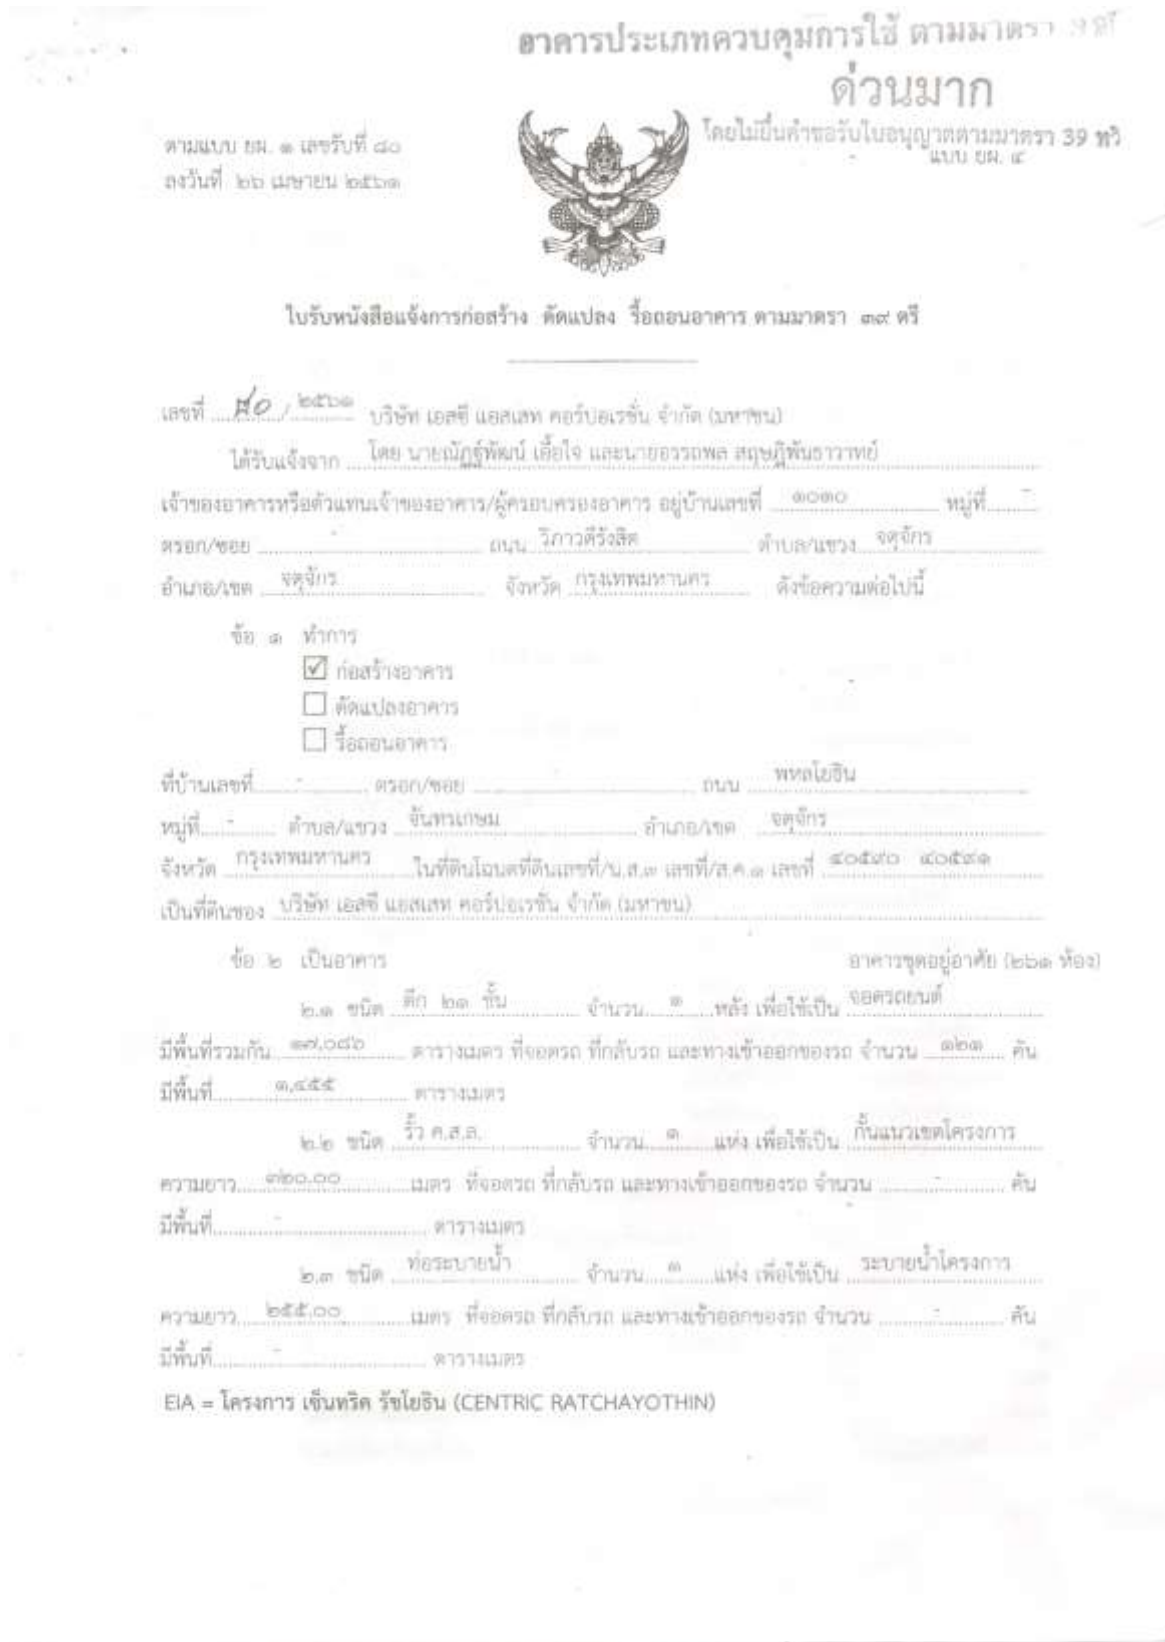 อาคารประเภทควบคุมการใช้ ตามมาตรา
ด่วนมาก
โดยไม่ยื่นคำขอรับใบอนุญาตตามมาตรา 39 ทวิ
แบบ ยผ. ๔
ตามแบบ ยผ. ๑ เลขรับที่ ๘๐
ลงวันที่ ๒๖ เมษายน ๒๕๖๑
ใบรับหนังสือแจ้งการก่อสร้าง ดัดแปลง รื้อถอนอาคาร ตามมาตรา ๓๙ ตรี
เลขที่ ๘๐ / ๒๕๖๑ บริษัท เอสซี แอสเสท คอร์ปอเรชั่น จำกัด (มหาชน)
ได้รับแจ้งจาก โดย นายณัฏฐ์พัฒน์ เอื้อใจ และนายอรรถพล สฤษฎิพันธาวาทย์
เจ้าของอาคารหรือตัวแทนเจ้าของอาคาร/ผู้ครอบครองอาคาร อยู่บ้านเลขที่ ๑๐๑๐ หมู่ที่ -
ตรอก/ซอย - ถนน วิภาวดีรังสิต ตำบล/แขวง จตุจักร
อำเภอ/เขต จตุจักร จังหวัด กรุงเทพมหานคร ดังข้อความต่อไปนี้
ข้อ ๑ ทำการ
ก่อสร้างอาคาร
ดัดแปลงอาคาร
รื้อถอนอาคาร
ที่บ้านเลขที่ - ตรอก/ซอย - ถนน พหลโยธิน
หมู่ที่ - ตำบล/แขวง จันทรเกษม อำเภอ/เขต จตุจักร
จังหวัด กรุงเทพมหานคร ในที่ดินโฉนดที่ดินเลขที่/น.ส.๓ เลขที่/ส.ค.๑ เลขที่ ๔๐๕๙๐ ๔๐๕๙๑
เป็นที่ดินของ บริษัท เอสซี แอสเสท คอร์ปอเรชัน จำกัด (มหาชน)
ข้อ ๒ เป็นอาคาร อาคารชุดอยู่อาศัย (๒๖๑ ห้อง)
๒.๑ ชนิด ตึก ๒๑ ชั้น จำนวน ๑ หลัง เพื่อใช้เป็น จอดรถยนต์
มีพื้นที่รวมกัน ๑๗,๐๘๖ ตารางเมตร ที่จอดรถ ที่กลับรถ และทางเข้าออกของรถ จำนวน ๑๒๑ คัน
มีพื้นที่ ๑,๔๕๕ ตารางเมตร
๒.๒ ชนิด รั้ว ค.ส.ล. จำนวน ๑ แห่ง เพื่อใช้เป็น กั้นแนวเขตโครงการ
ความยาว ๓๒๐.๐๐ เมตร ที่จอดรถ ที่กลับรถ และทางเข้าออกของรถ จำนวน - คัน
มีพื้นที่ - ตารางเมตร
๒.๓ ชนิด ท่อระบายน้ำ จำนวน ๑ แห่ง เพื่อใช้เป็น ระบายน้ำโครงการ
ความยาว ๒๕๕.๐๐ เมตร ที่จอดรถ ที่กลับรถ และทางเข้าออกของรถ จำนวน - คัน
มีพื้นที่ - ตารางเมตร
EIA = โครงการ เซ็นทริค รัชโยธิน (CENTRIC RATCHAYOTHIN)